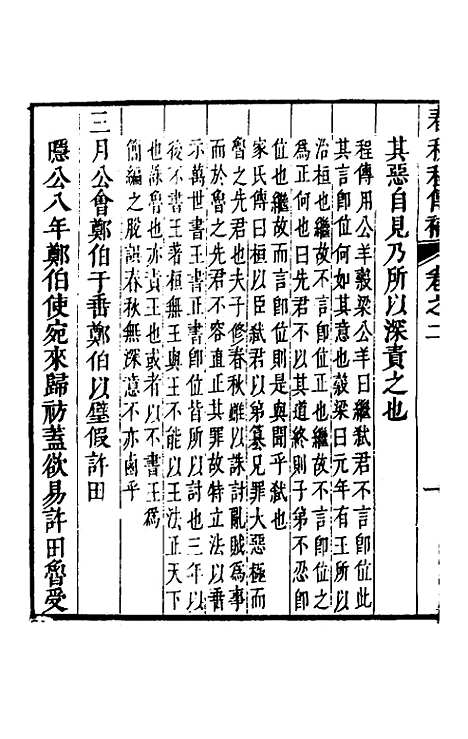 春秋程傳補
卷之二
一
其惡自見乃所以深責之也
程傳用公羊穀梁公羊曰繼弒君不言卽位此
其言卽位何如其意也穀梁曰元年有王所以
治桓也繼故不言卽位正也繼故不言卽位之
爲正何也曰先君不以其道終則子弟不忍卽
位也繼故而言卽位則是與聞乎弒也
家氏傳曰桓以臣弒君以弟簒兄罪大惡極而
魯之先君也夫子修春秋雖以誅討亂賊爲事
而於魯之先君不容直正其罪故特立法以垂
示萬世書王正書卽位皆所以討也三年以
後不書王著桓無王與王不能以王法正天下
也誅魯也亦責王也或者以不書王爲
簡編之脫誤春秋無深意不亦固乎
三月公會鄭伯于垂鄭伯以璧假許田
隱公八年鄭伯使宛來歸祊蓋欲易許田魯受